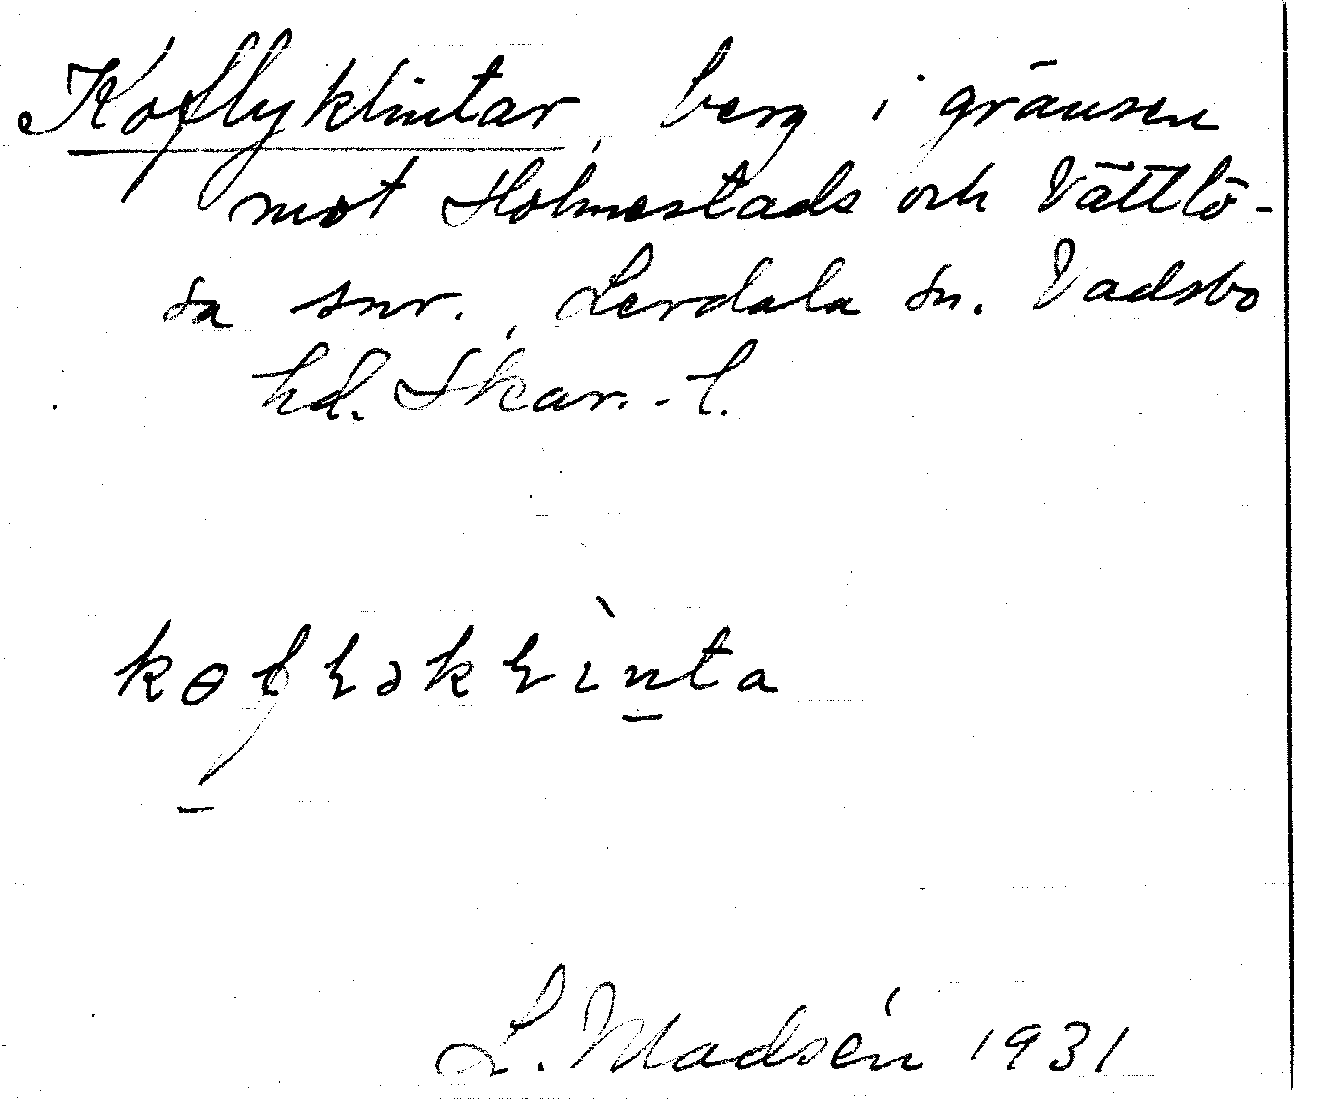 Koflyklintar, berg i gränsen
mot Holmestads och Vättlö-
sa snr., Lerdala sn. Vadsbo
hd. Skar.-l.
kɵfləklìnta
L. Madsén 1931